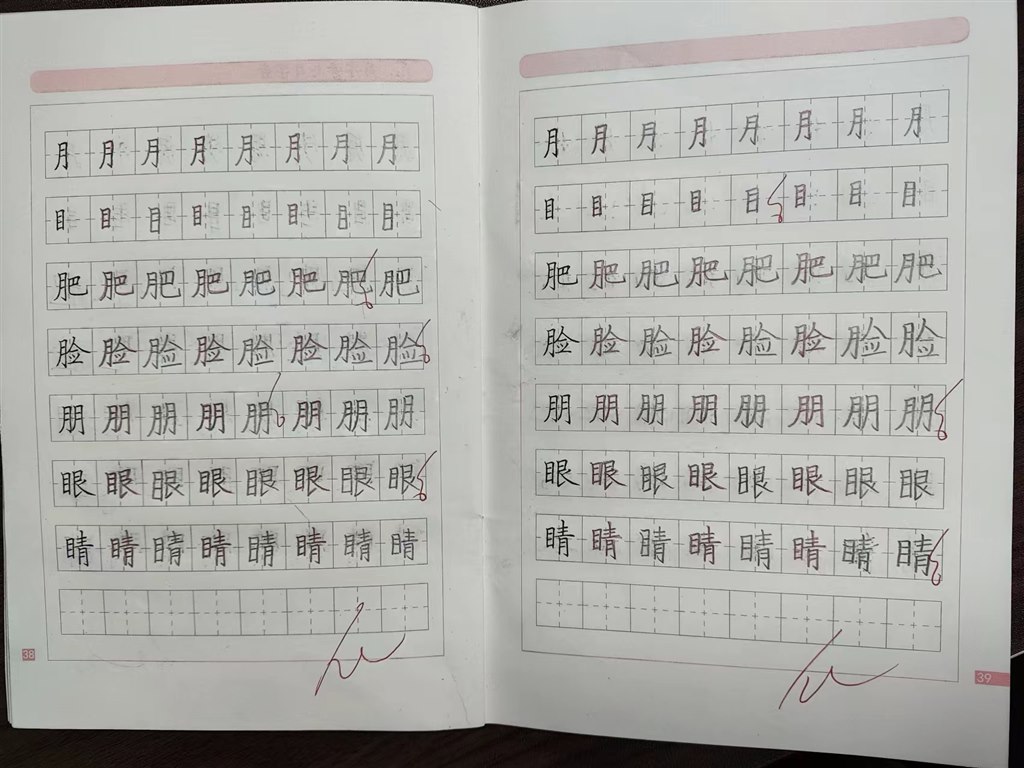 月月月月月月月月
目目目目目目目目
肥肥肥肥肥肥肥肥
脸脸脸脸脸脸脸脸
朋朋朋朋朋朋朋朋
眼眼眼眼眼眼眼眼
睛睛睛睛睛睛睛睛
38
月月月月月月月月
目目目目目目目目
肥肥肥肥肥肥肥肥
脸脸脸脸脸脸脸脸
朋朋朋朋朋朋朋朋
眼眼眼眼眼眼眼眼
睛睛睛睛睛睛睛睛
39